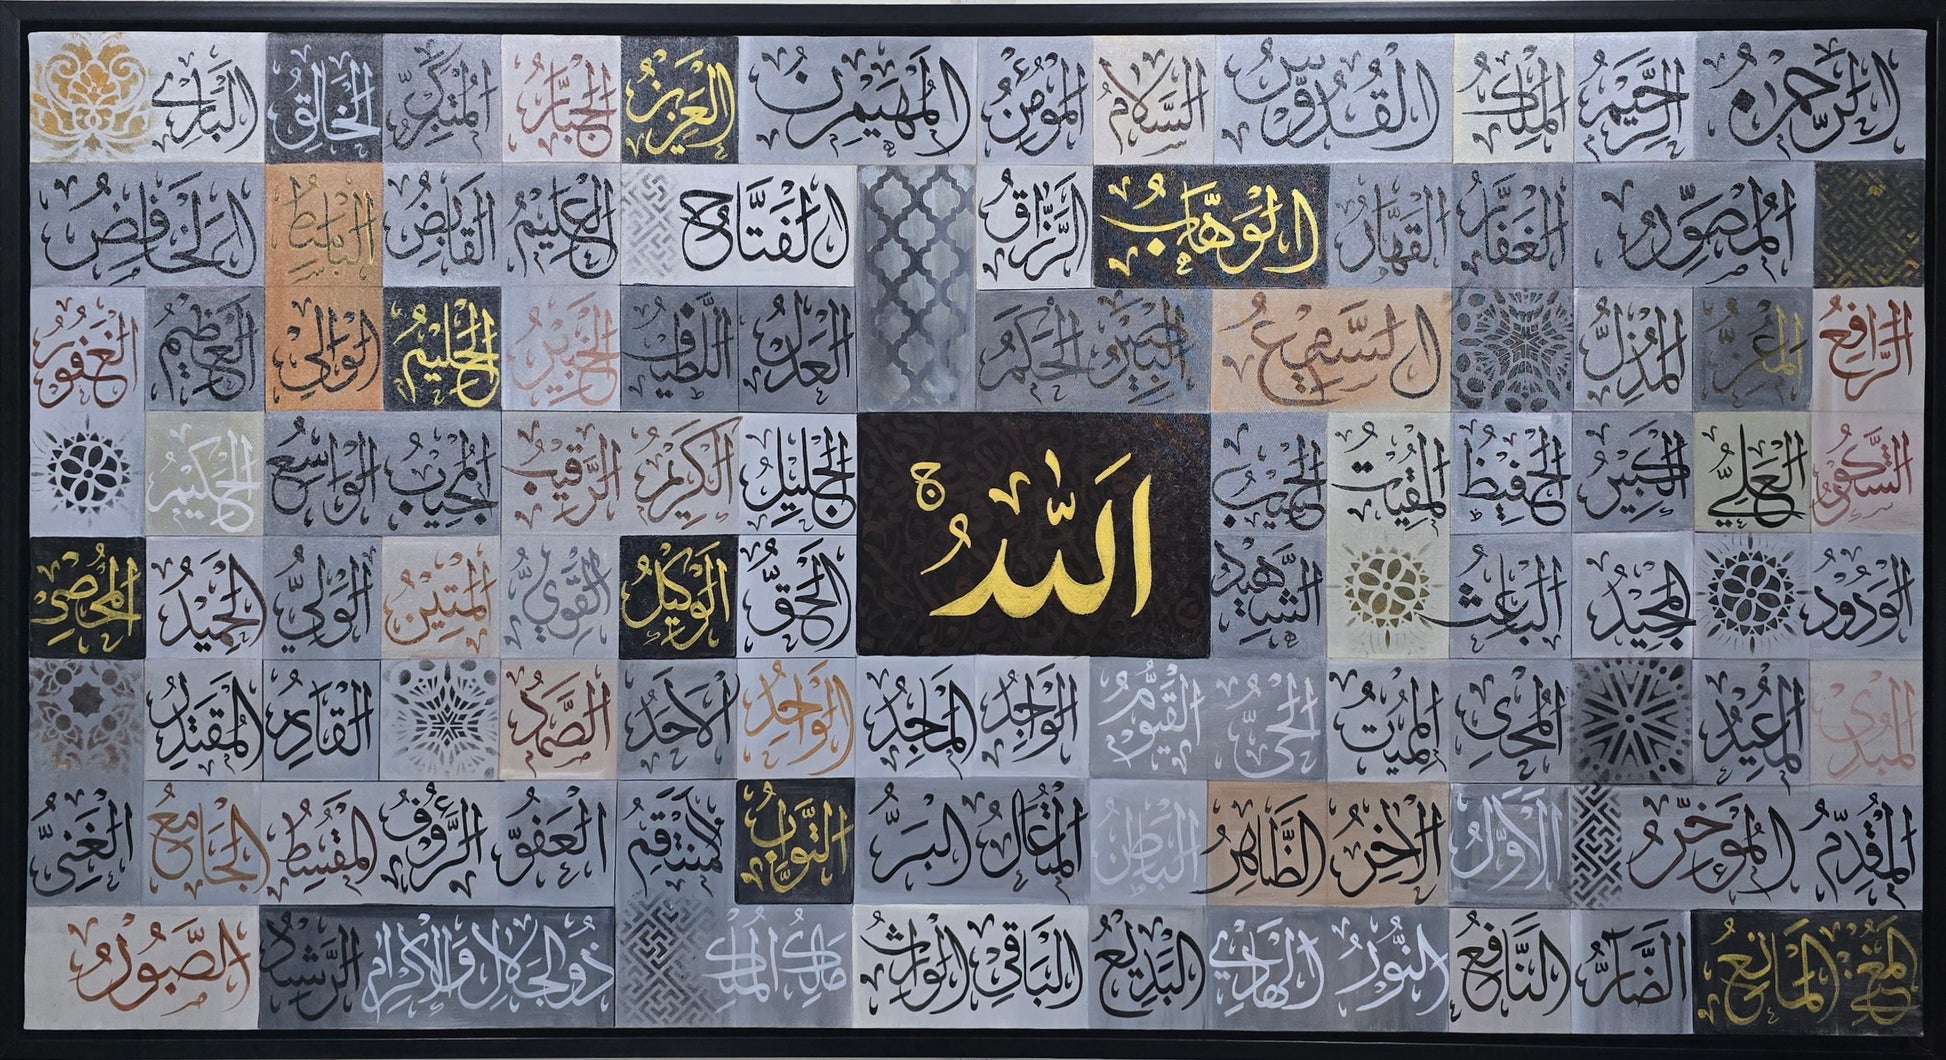 الرَّحْمٰنُ الرَّحِيْمُ المَلِكُ القُدُّوْسُ السَّلَامُ المُؤْمِنُ المُهَيْمِنُ العَزِيْزُ الجَبَّارُ المُتَكَبِّرُ الخَالِقُ البَارِئُ
المُصَوِّرُ الغَفَّارُ القَهَّارُ الوَهَّابُ الرَّزَّاقُ الفَتَّاحُ العَلِيْمُ القَابِضُ البَاسِطُ الخَافِضُ
الرَّافِعُ المُعِزُّ المُذِلُّ السَّمِيْعُ الحَكَمُ العَدْلُ اللَّطِيْفُ الخَبِيْرُ الحَلِيْمُ الوَالِي العَظِيْمُ الغَفُوْرُ
الشَّكُوْرُ العَلِيُّ الكَبِيْرُ الحَفِيْظُ المُقِيْتُ الحَسِيْبُ الجَلِيْلُ الكَرِيْمُ الرَّقِيْبُ المُجِيْبُ الوَاسِعُ الحَكِيْمُ
اللّٰهُ ج
الوَدُوْدُ المَجِيْدُ البَاعِثُ الشَّهِيْدُ الحَقُّ الوَكِيْلُ القَوِيُّ المَتِيْنُ الوَلِيُّ الحَمِيْدُ المُحْصِيْ
المُبْدِئُ المُعِيْدُ المُحْيِيْ المُمِيْتُ الحَيُّ القَيُّوْمُ الوَاجِدُ المَاجِدُ الوَاحِدُ الاَحَدُ الصَّمَدُ القَادِرُ المُقْتَدِرُ
المُقَدِّمُ المُؤَخِّرُ الأَوَّلُ الآخِرُ الظَّاهِرُ البَاطِنُ المُتَعَالُ البَرُّ التَّوَّابُ المُنْتَقِمُ العَفُوُّ الرَّءُوْفُ المُقْسِطُ الجَامِعُ الغَنِيُّ
المُغْنِيْ المَانِعُ الضَّارُّ النَّافِعُ النُّوْرُ الهَادِيْ البَدِيْعُ البَاقِيْ الوَارِثُ مَالِكُ المُلْكِ ذُوْ الجَلَالِ وَالإِكْرَامِ الرَّشِيْدُ الصَّبُوْرُ